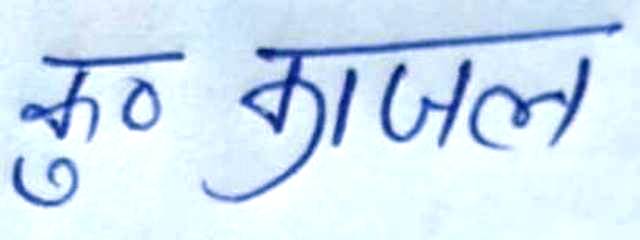 कु० काजल